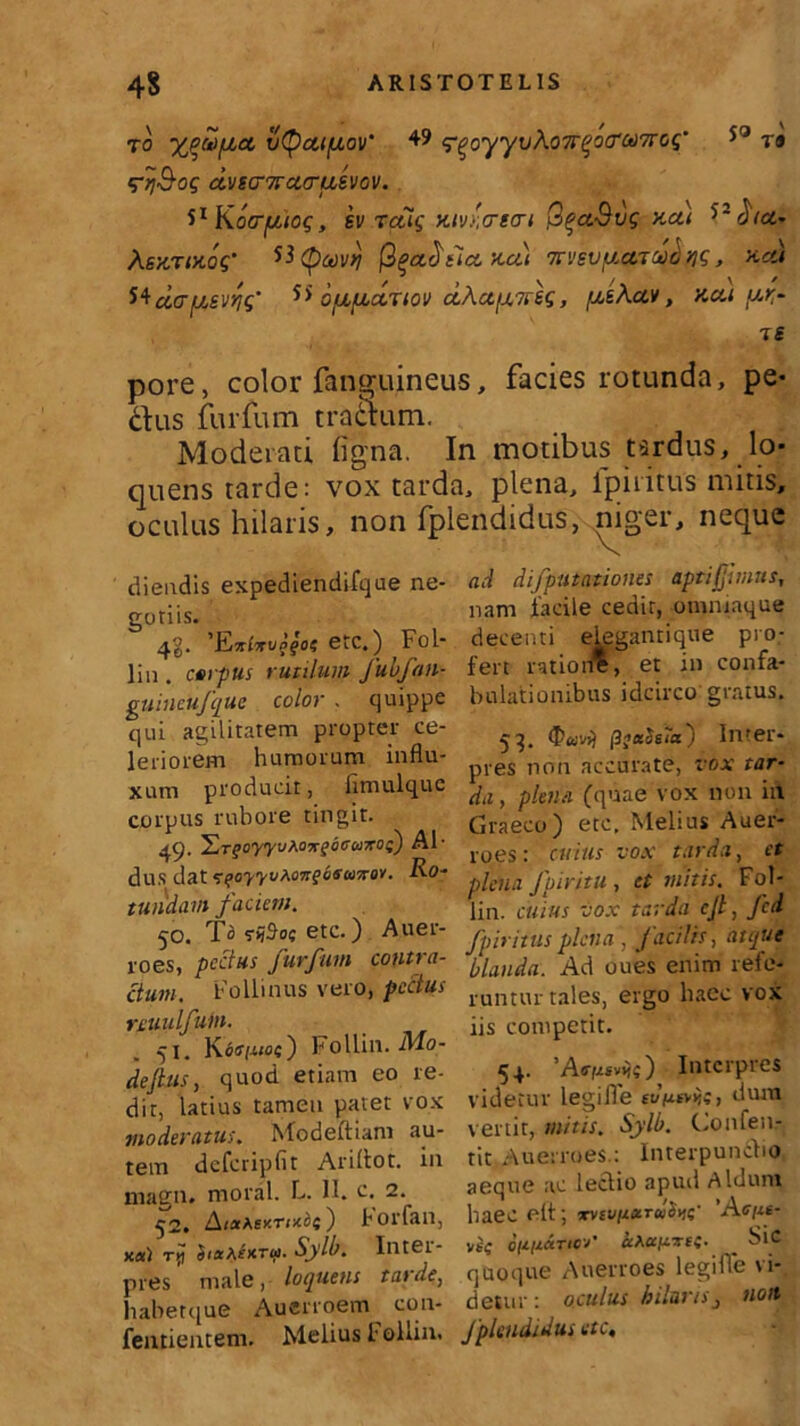 48 ARISTOTELIS
τὸ χρῶμα ὕφαιμον· 49 ϛρογγυλοπρόσωπος· 50 τὸ
ϛῆθος ἀνεσπασμένον.
51 Κόσμιος, ἐν ταῖς κινήσεσι βραδὺς καὶ 52 δια-
λεκτικός· 53 φωνὴ βραδεῖα καὶ πνευματώδης, καὶ
54 ἀσμενής· 55 ὀμμάτιον ἀλαμπὲς, μέλαν, καὶ μή-
τε
pore, color ſanguineus, facies rotunda, pe-
ctus ſurſum tractum.
Moderati ſigna. In motibus tardus, lo-
quens tarde: vox tarda, plena, ſpiritus mitis,
oculus hilaris, non ſplendidus, niger, neque
diendis expediendiſque ne-
gotiis.
48. Ἐπίπυῤῥος etc.) Fol-
lin. corpus rutilum ſubſan-
guineuſque color, quippe
qui agilitatem propter ce-
leriorem humorum influ-
xum producit, ſimulque
corpus rubore tingit.
49. Στρογγυλοπρόσωπος) Al-
dus dat ϛρογγυλοπρόσωπον. Ro-
tundam faciem.
50. Τὸ ϛῆθος etc.) Auer-
roes, pectus ſurſum contra-
ctum. Follinus vero, pectus
reuulſum.
51. Κόσμιος) Follin. Mo-
deſtus, quod etiam eo re-
dit, latius tamen patet vox
moderatus. Modeſtiam au-
tem deſcripſit Ariſtot. in
magn. moral. L. II. c. 2.
52. Διαλεκτικὸς) Forſan,
καὶ τῇ διαλέκτῳ. Sylb. Inter-
pres male, loquens tarde,
habetque Auerroem con-
ſentientem. Melius Follin.
ad diſputationes aptiſſimus,
nam facile cedit, omniaque
decenti elegantique pro-
fert ratione, et in confa-
bulationibus idcirco gratus.
53. Φωνὴ βραδεῖα) Inter-
pres non accurate, vox tar-
da, plena (quae vox non in
Graeco) etc. Melius Auer-
roes: cuius vox tarda, et
plena ſpiritu, et mitis. Fol-
lin. cuius vox tarda eſt, ſed
ſpiritus plena, facilis, atque
blanda. Ad oues enim refe-
runtur tales, ergo haec vox
iis competit.
54. Ἀσμενής) Interpres
videtur legiſſe εὐμενής, dum
vertit, mitis. Sylb. Conſen-
tit Auerroes.: Interpunctio
aeque ac lectio apud Aldum
haec eſt; πνευματώδης· Ἀσμε-
νὲς ὀμμάτιον· ἀλαμπες. Sic
quoque Auerroes legiſſe vi-
detur: oculus hilaris, non
ſplendidus etc.